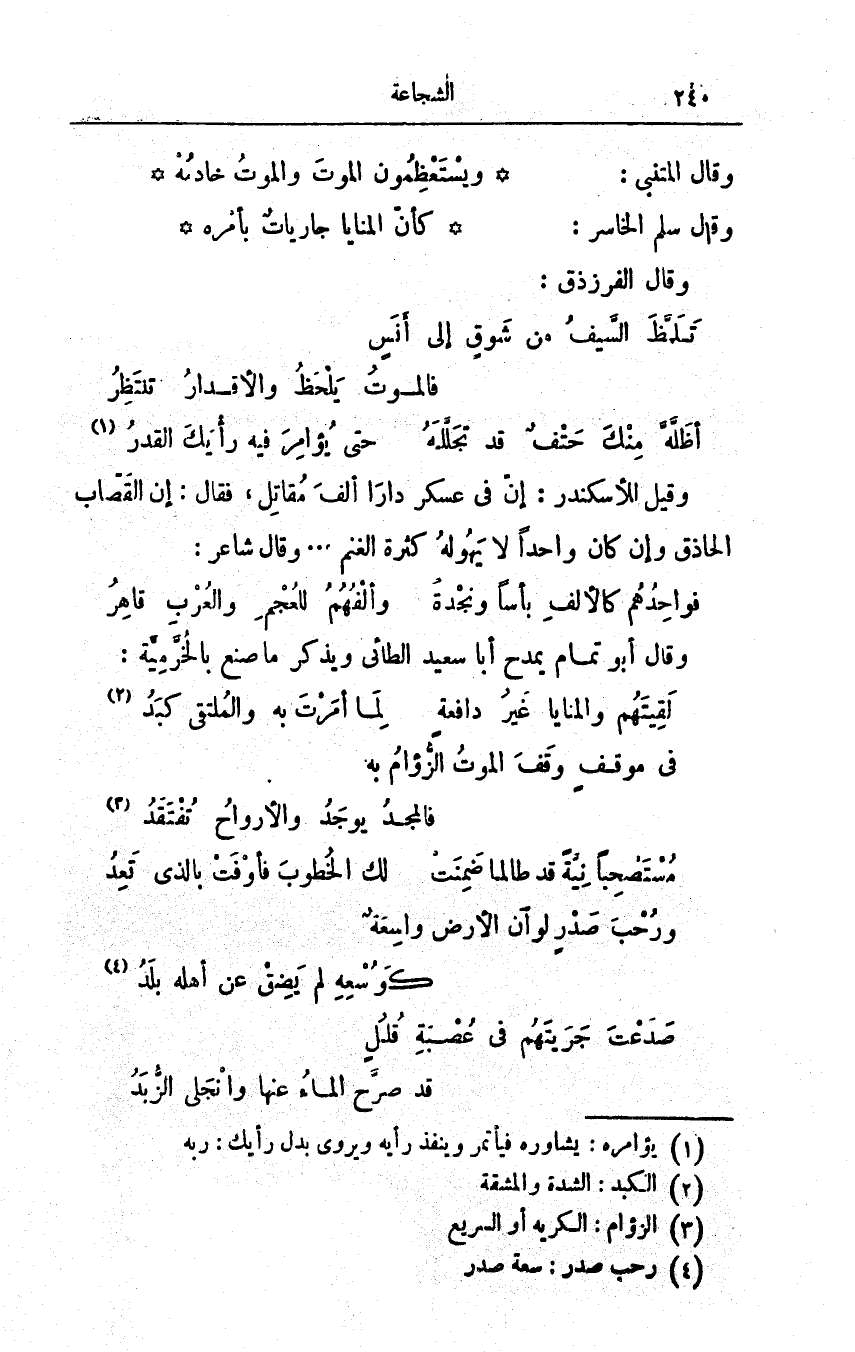 ٢٤٠ الشجاعة
وقال المتنبى : * ويسْتَعْظِمُون الموتَ والموتُ خادمُهْ *
وقال سلم الخاسر : * كأنّ المنايا جارياتٌ بأمْره *
وقال الفرزذق :
تَلَمَّظَ السَّيفُ من شَوقٍ إلى أَنَسٍ
فالمـوتُ يَلْحَظُ والأقـدارُ تنتَظِرُ
أظَلَّهَُ مِنْكَ حَتْفٌ قد تَجَلَّلَهُ حتى يُؤامِرَ فيه رأْيَكَ القدرُ (١)
وقيل للأسكندر : إنّ فى عسكر دارَا ألفَ مُقاتِل ، فقال : إن القَصّاب
الحاذق وإن كان واحداً لا يَهُولهُ كثرة الغنم ... وقال شاعر :
فواحِدُهُم كالألفِ بأساً ونجْدةً وألْفُهُمُ للعُجْمِ والعُرْبِ قاهِرُ
وقال أبو تمـام يمدح أبا سعيد الطائى ويذكر ماصنع بالخُرَّمِيَّة :
لَقِيتَهُم والمنايا غَيرُ دافعةٍ لِمَـا أمَرْتَ به والمُلتقى كبَدُ (٢)
فى موقـفٍ وقَفَ الموتُ الزُّؤامُ به
فالمجـدُ يوجَدُ والأرواحُ تُفْتَقَدُ (٣)
مُسْتَصْحِباً نِيَّةً قد طالما ضَمِنَتْ لك الخُطوبَ فأوْفَتْ بالذى تَعِدُ
ورُحْبَ صَدْرٍ لو أن الأرض واسِعَةٌ
كَوُسْعِهِ لم يَضِقْ عن أهله بلَدُ (٤)
صَدَعْتَ جَريَتَهُم فى عُصْبَةٍ قُلُلٍ
قد صرَّح المـاءُ عنها وانْجَلى الزَّبَدُ
(١) يؤامره : يشاوره فيأتمر وينفذ رأيه ويروى بدل رأيك : ربه
(٢) الكبد : الشدة والمشقة
(٣) الزؤام : الكريه أو السريع
(٤) رحب صدر : سعة صدر